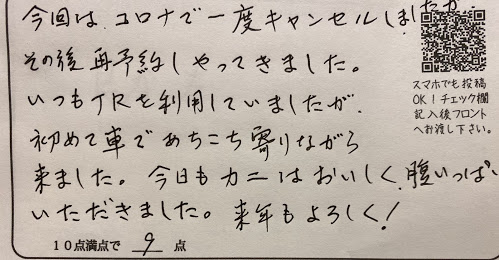 今回は、コロナで一度キャンセルしましたが、
その後再予約しやってきました。
いつもJRを利用していましたが、
初めて車であちこち寄りながら
来ました。今日もカニはおいしく、腹いっぱい
いただきました。来年もよろしく!
10点満点で 9 点
スマホでも投稿
OK!チェック欄
記入後フロント
へお渡し下さい。